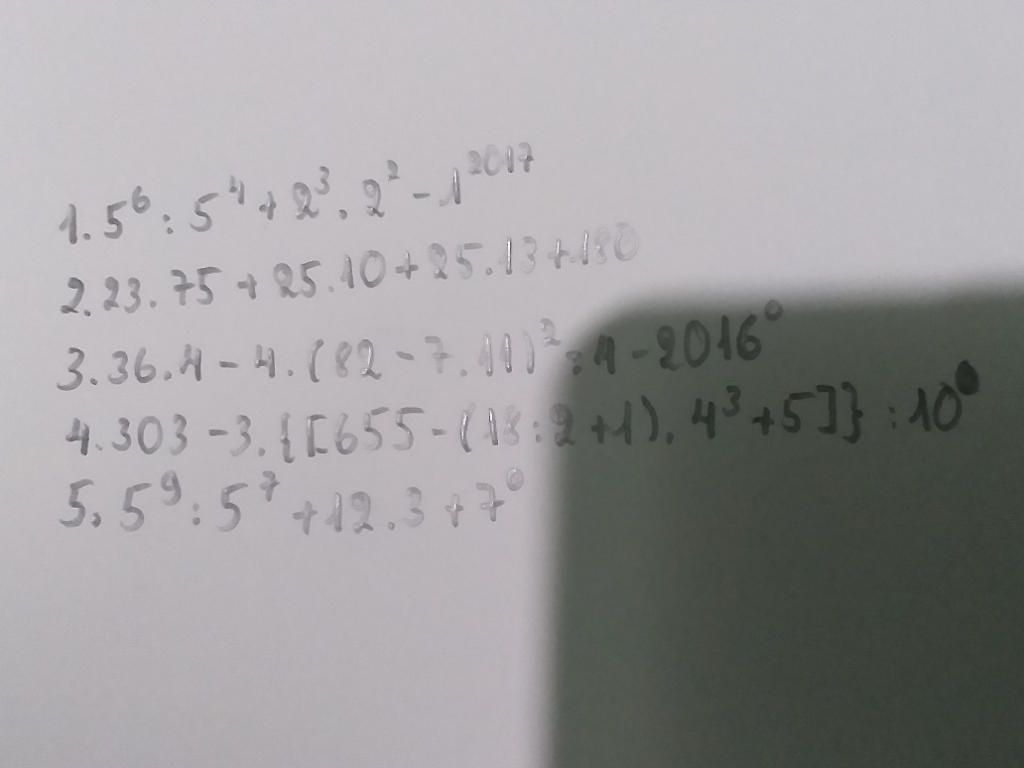 1. 5⁶ : 5⁴ + 2³ . 2² - 1²⁰¹⁷
2. 23 . 75 + 25 . 10 + 25 . 13 + 180
3. 36 . 4 - 4 . (82 - 7 . 11)² : 4 - 2016⁰
4. 303 - 3 . {[655 - (18 : 2 + 1) . 4³ + 5]} : 10⁰
5. 5⁹ : 5⁷ + 12 . 3 + 7⁰